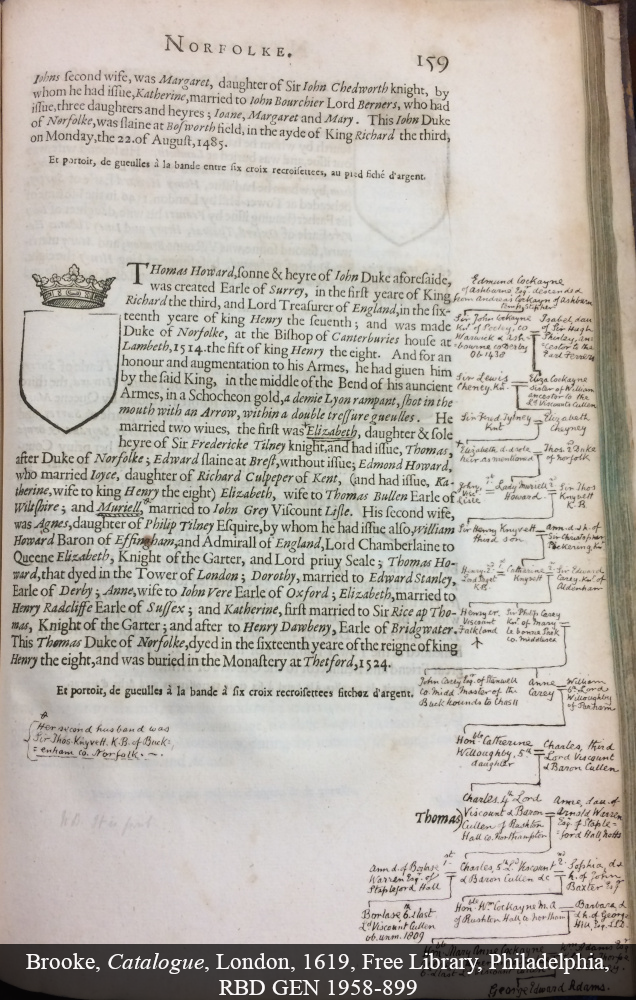 NORFOLKE.
159
Iohns second wife, was Margaret, daughter of Sir Iohn Chedworth knight, by
whom he had issue, Katherine, married to Iohn Bourchier Lord Berners, who had
issue, three daughters and heyres; Ioane, Margaret and Mary. This Iohn Duke
of Norfolke, was slaine at Bosworth field, in the ayde of King Richard the third,
on Monday, the 22. of August, 1485.
Et portoit, de gueulles à la bande entre six croix recroisettees, au pied fiché d'argent.
THomas Howard, sonne & heyre of Iohn Duke aforesaide,
was created Earle of Surrey, in the first yeare of King
Richard the third, and Lord Treasurer of England, in the six-
teenth yeare of king Henry the seuenth; and was made
Duke of Norfolke, at the Bishop of Canterburies house at
Lambeth, 1514. the fift of king Henry the eight. And for an
honour and augmentation to his Armes, he had giuen him
by the said King, in the middle of the Bend of his auncient
Armes, in a Schocheon gold, a demie Lyon rampant, shot in the
mouth with an Arrow, within a double tressure gueulles. He
married two wiues, the first was Elizabeth, daughter & sole
heyre of Sir Fredericke Tilney knight, and had issue, Thomas,
after Duke of Norfolke; Edward slaine at Brest, without issue; Edmond Howard,
who married Ioyce, daughter of Richard Culpeper of Kent, (and had issue, Ka-
therine, wife to king Henry the eight) Elizabeth, wife to Thomas Bullen Earle of
Wilshire; and Muriell, married to Iohn Grey Viscount Lisle. His second wife,
was Agnes, daughter of Philip Tilney Esquire, by whom he had issue also, William
Howard Baron of Effingham, and Admirall of England, Lord Chamberlaine to
Queene Elizabeth, Knight of the Garter, and Lord priuy Seale; Thomas Ho-
ward, that dyed in the Tower of London; Dorothy, married to Edward Stanley,
Earle of Derby; Anne, wife to Iohn Vere Earle of Oxford; Elizabeth, married to
Henry Radcliffe Earle of Sussex; and Katherine, first married to Sir Rice ap Tho-
mas, Knight of the Garter; and after to Henry Dawbeny, Earle of Bridgwater.
This Thomas Duke of Norfolke, dyed in the sixteenth yeare of the reigne of king
Henry the eight, and was buried in the Monastery at Thetford, 1524.
Et portoit, de gueulles à la bande à six croix recroisettees fitchez d'argent.
Her second husband was
Sir Thos Knyvett. K.B. of Buck=
=enham co. Norfolk.
Edmund Cockayne
of Ashborne Esq. descended
from Andreas Cockayn of Ashburn
Sir John Cockayne
Knt. of Pooley, co
Warwick & Ash-
bourne co Derby
Ob 1438
Isabel, dau
of Sir Hugh
Shirley, an-
cestor to the
Earl Ferrers
Sir Lewis
Cheney Knt.
Eliza Cockayne
sister of William
ancestor to the
Lds Viscounts Cullen
Sir Fred Tylney
Knt
Elizabeth
Cheyney
Elizabeth d. & sole
heir as mentioned
Thos 2d Duke
of Norfolk
John
Visc
Lisle
Lady Muriell
Howard
Sir Thos
Knyvett
K.B.
Sir Henry Knyvett
third son
Ann d. & h. of
Sir Christopher
Pickering
Catherine
Knyvett
Sir Edward
Carey Knt. of
Aldenham
Henry cr.
Viscount
Falkland
Sir Philip Carey
Knt of Mary
le bonne Park
co. Middlesex
John Carey Esq. of Stanwell
co. Midd. Master of the
Buck hounds to Chas II
Anne
Carey
William
6th Lord
Willoughby
of Parham
Honble Catherine
Willoughby, 5th
daughter
Charles, third
Lord Viscount
& Baron Cullen
Thomas
Charles 4th Lord
Viscount & Baron
Cullen of Rushton
Hall co. Northampton
Anne, dau. of
Arnold Warren
Esq. of Staple-
ford Hall, Notts
Ann d. of Borlase
Warren Esq. of
Stapleford Hall
Charles, 5th Ld Viscount
& Baron Cullen &c
Sophia, d. &
h. of John
Baxter Esq.
Borlase 6th & last
Ld Viscount Cullen
ob. unm. 1809
Honble Wm Cockayne M.A.
of Rushton Hall co Northam
Barbara, d.
& h. of George
Hill, Esq. LL.D.
George Edward Adams.
Brooke, Catalogue, London, 1619, Free Library, Philadelphia,
RBD GEN 1958-899